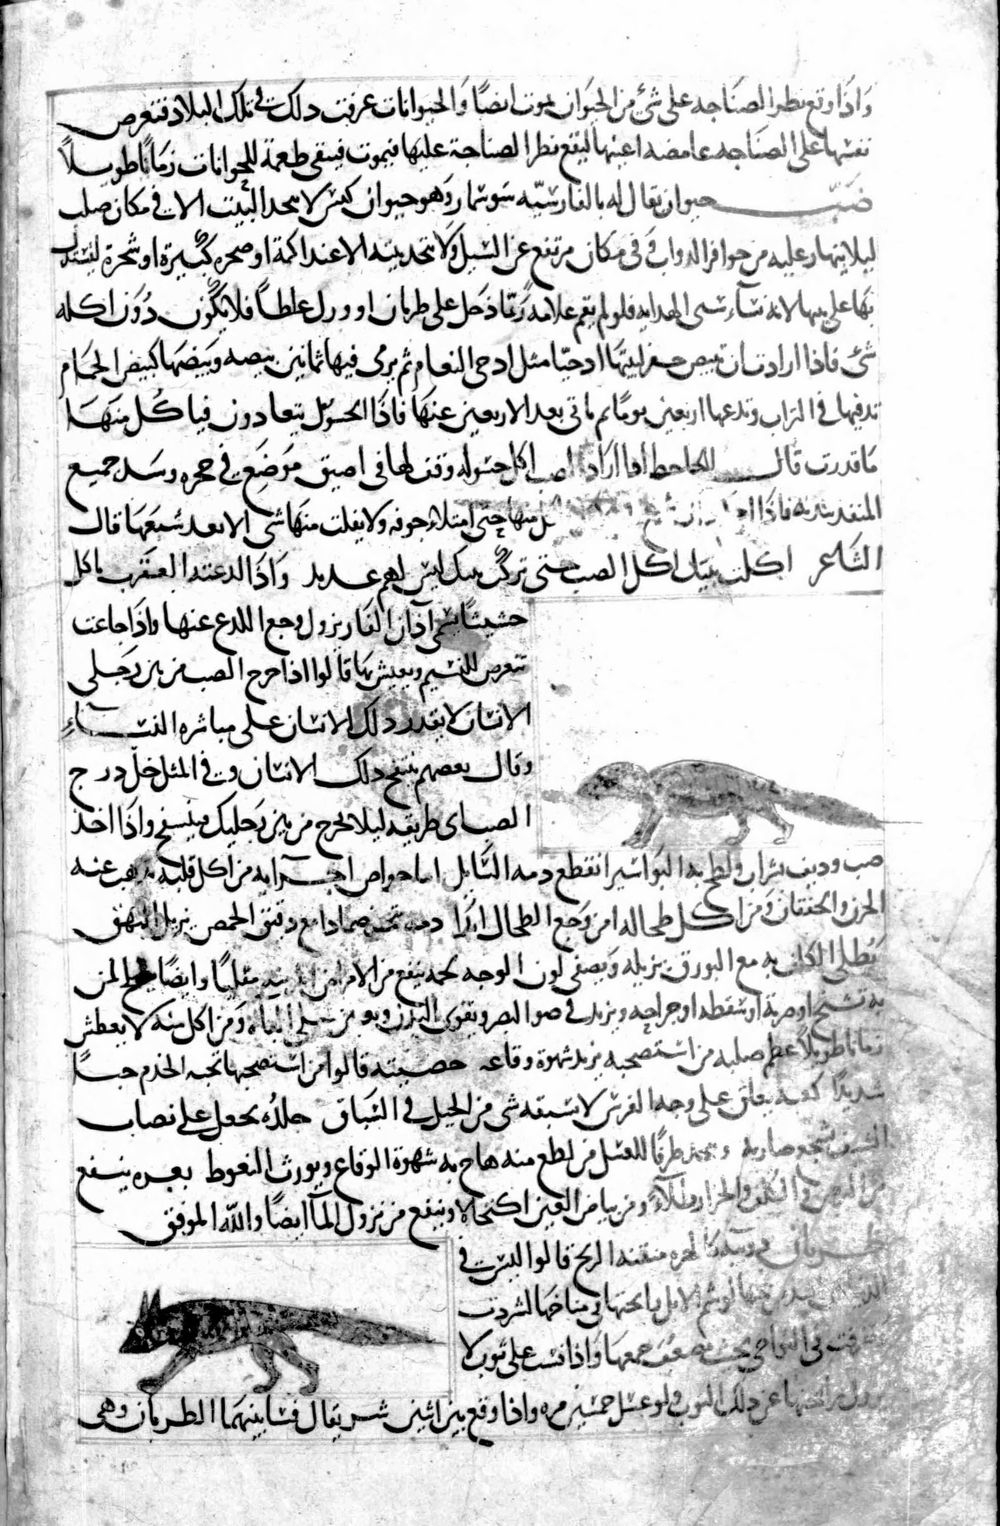 وإذا وقع نظر الصناجه على شئ من الحيوان يموت ايضاً والحيوانات عرفت ذلك في تلك البلاد فتعرض
نفسها على الصناجه غامضه اعينها ليقع نظر الصناجة عليها فيموت فيبقى طعمة للحيوانات زماناً طويلاً
ضب حيوان يقال له بالفارسيّه سوسمار وهو حيوان كيس لا يتخذ البيت الا في مكان صلب
ليلا ينهار عليه من حوافر الدواب وفي مكان مرتفع عن السيل ولا يتخذ بيته الا عند اكمة او صخره كبيرة او شجرة ليستدل
بها على بيتها لانه نسّآء فلو لم يقم علامة ربّما دخل على ظربان او ورل غلطاً فلا يكون دون اكله
شئ فاذا ارادت ان تبيض حفر لبيتها ادحيّا مثل ادحى النعام ثم يرمى فيها ثمانين بيضه وبيضها كبيض الحمام
تدفنها في التراب وتدعها اربعين يوماً ثم ياتى بعد الاربعين عنها فاذا الحسول يتعادون فياكل منها
ما قدرت قال الجاحظ اذا اراد الضب اكل حسوله وقف لها في اضيق موضع في حجره وسد جميع
المنفذ بيديه فاذا منها حتى امتلاء جوفه ولا يفلت منها شى الا بعد شبعها قال
الشاعر اكلت بنيك اكل الضب حتى تركت بنيك ليس لهم عديد واذا لدغته العقرب ياكل
حشيشاً يسمى آذان الفار يزول وجع اللدغ عنها واذا جاعت
تتعرض للنسيم ويعيش بها قالوا اذا خرج الضب من بين رجلى
الانسان لا يقدر ذلك الانسان على مباشرة النساء
وقال بعضهم ينفخ ذلك الانسان وفي المثل خل درج
الضب اى طريقه ليلا يخرج من بين رجليك فينتفخ واذا اخذ
ضب ولطخ به البواسير انقطع دمه السّايل اما خواص اجزايه من اكل قلبه يذهب عنه
الحزن والخفقان ومن اكل طحاله امن وجع الطحال ابدا دمه يتخذ ضمادا مع دقيق الحمص يزيل البهق
يطلى الكلف به مع البورق يزيله ويصفى لون الوجه لحمه ينفع من الامراض وايضاً لمن
به تشنج او ضربة او سقطه او جراحه ويزيد في ضو البصر ويقوى البدن على الباه ومن اكل منه لا يعطش
زماناً طويلاً عظم صلبه من استصحبه يزيد شهوة وقاعه خصيته قالوا من استصحبها تحبه الخدم حبا
شديدا كعبه يعلق على وجه الفرس لا يسبقه شى من الخيل في السباق جلده يجعل على نصاب
السيف يشجع صاحبه ويتخذ ظرفا للعسل من لطع منه هاج به شهوة الوقاع ويورث النعوظ بعره ينفع
من البرص والكلف والحزاز طلآءً ومن بياض العين اكتحالا وينفع من نزول المآ ايضاً والله الموفق
ظربان دويبه كالهره منتنه الريح قالوا ليس في
الابل رايحتها في مناخها لشردت
وتفرقت في النواحي بحيث يصعب جمعها واذا فست على ثوب لا
يزول رايحتها عن ذلك الثوب ولو غسل خمسين مره واذا وقع بين اثنين شر يقال فسا بينهما الظربان وهى